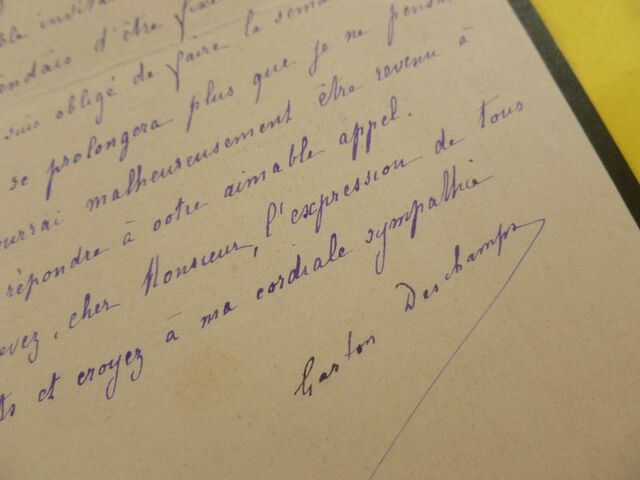 ble invita
endais d'être fixé
suis obligé de faire la sema
se prolongera plus que je ne pensa
ourrai malheureusement être revenu à
répondre à votre aimable appel.
evez, cher Monsieur, l'expression de tous
ts et croyez à ma cordiale sympathie
Gaston Deschamps